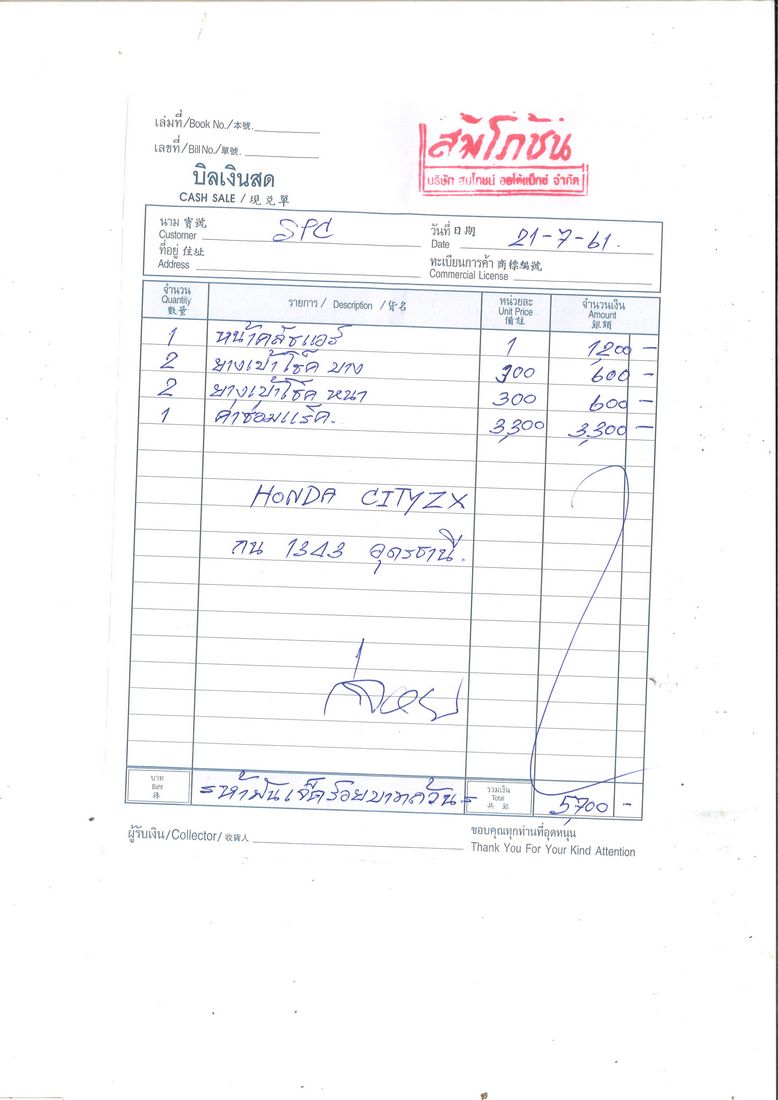 เล่มที่/Book No./本號.
เลขที่/Bill No./單號.
บิลเงินสด
CASH SALE / 現兑單
สัมโภชัน
บริษัท สมโภชน์ ออโต้แม็กซ์ จำกัด
นาม 寶號
Customer SPC
วันที่ 日期
Date 21-7-61.
ที่อยู่ 住址
Address
ทะเบียนการค้า 商標編號
Commercial License
จำนวน Quantity 數量 รายการ / Description / 貨名 หน่วยละ Unit Price 價註 จำนวนเงิน Amount 銀額
1 หน้าคลัชแอร์ 1 1,200 -
2 ยางเบ้าโช๊ค บาง 300 600 -
2 ยางเบ้าโช๊ค หนา 300 600 -
1 ค่าซ่อมแร็ค. 3,300 3,300 -
HONDA CITY ZX
กน 1343 อุดรธานี.
บาท Baht 銖 =ห้าพันเจ็ดร้อยบาทถ้วน= รวมเงิน Total 共銀 5,700 -
ผู้รับเงิน/Collector/收貨人
ขอบคุณทุกท่านที่อุดหนุน
Thank You For Your Kind Attention